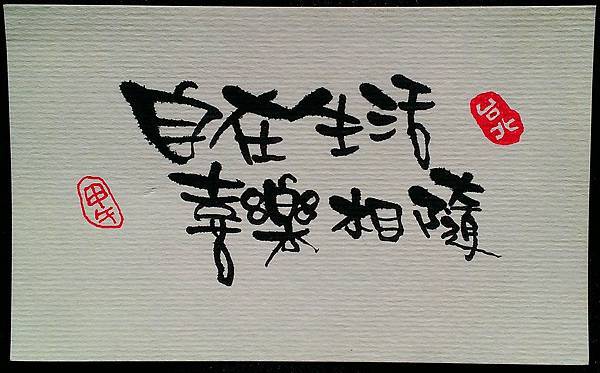 自在生活
喜樂相隨
台北
甲午